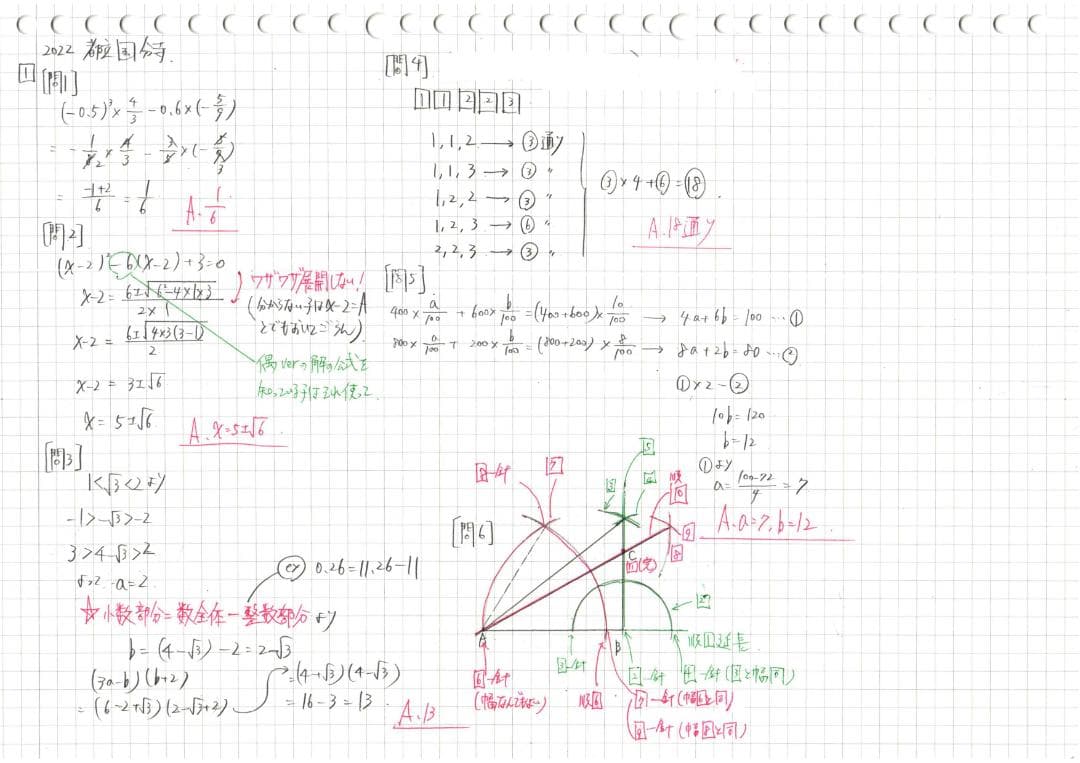 2022 都立国分寺.
1
[問1]
(-0.5)³×4/3-0.6×(-5/9)
=-1/8 2×4/3-3/5×(-5/9 3)
=(-1+2)/6=1/6
A.1/6
[問2]
(x-2)²-6(x-2)+3=0
x-2=(6±√(6²-4×1×3))/(2×1)
x-2=(6±√(4×3(3-1)))/2
x-2=3±√6
x=5±√6
A.x=5±√6
ワザワザ展開しない!
(分からない子はx-2=A
とでもおいてごらん)
偶verの解の公式を
知ってる子はそれ使って
[問3]
1<√3<2より
-1>-√3>-2
3>4-√3>2
よって a=2
ex 0.26=11.26-11
☆小数部分=数全体-整数部分より
b=(4-√3)-2=2-√3
(3a-b)(b+2)
=(6-2+√3)(2-√3+2)
=(4+√3)(4-√3)
=16-3=13
A.13
[問4]
1 1 2 2 3
1,1,2→③通り
1,1,3→③〃
1,2,2→③〃
1,2,3→⑥〃
2,2,3→③〃
③×4+⑥=⑱.
A.18通り
[問5]
400×a/100+600×b/100=(400+600)×10/100 → 4a+6b=100…①
800×a/100+200×b/100=(800+200)×8/100 → 8a+2b=80…②
①×2-②
10b=120
b=12
①より
a=(100-72)/4=7
A.a=7,b=12
[問6]
8-針
7
3
5
4
順
10
9
8
C
11(完)
A
B
2
順1延長
3-針
2-針
4-針(3と幅同)
6-針
(幅なんでもよい)
順6
7-針(幅6と同)
9-針(幅8と同)